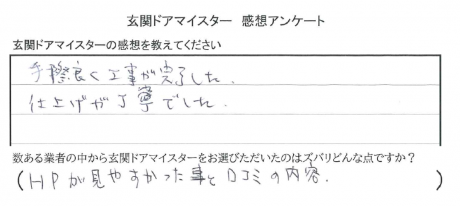 玄関ドアマイスター 感想アンケート
玄関ドアマイスターの感想を教えてください
手際良く工事が完了した.
仕上げが丁寧でした.
数ある業者の中から玄関ドアマイスターをお選びただいたのはズバリどんな点ですか？
(HPが見やすかった事と口コミの内容.)